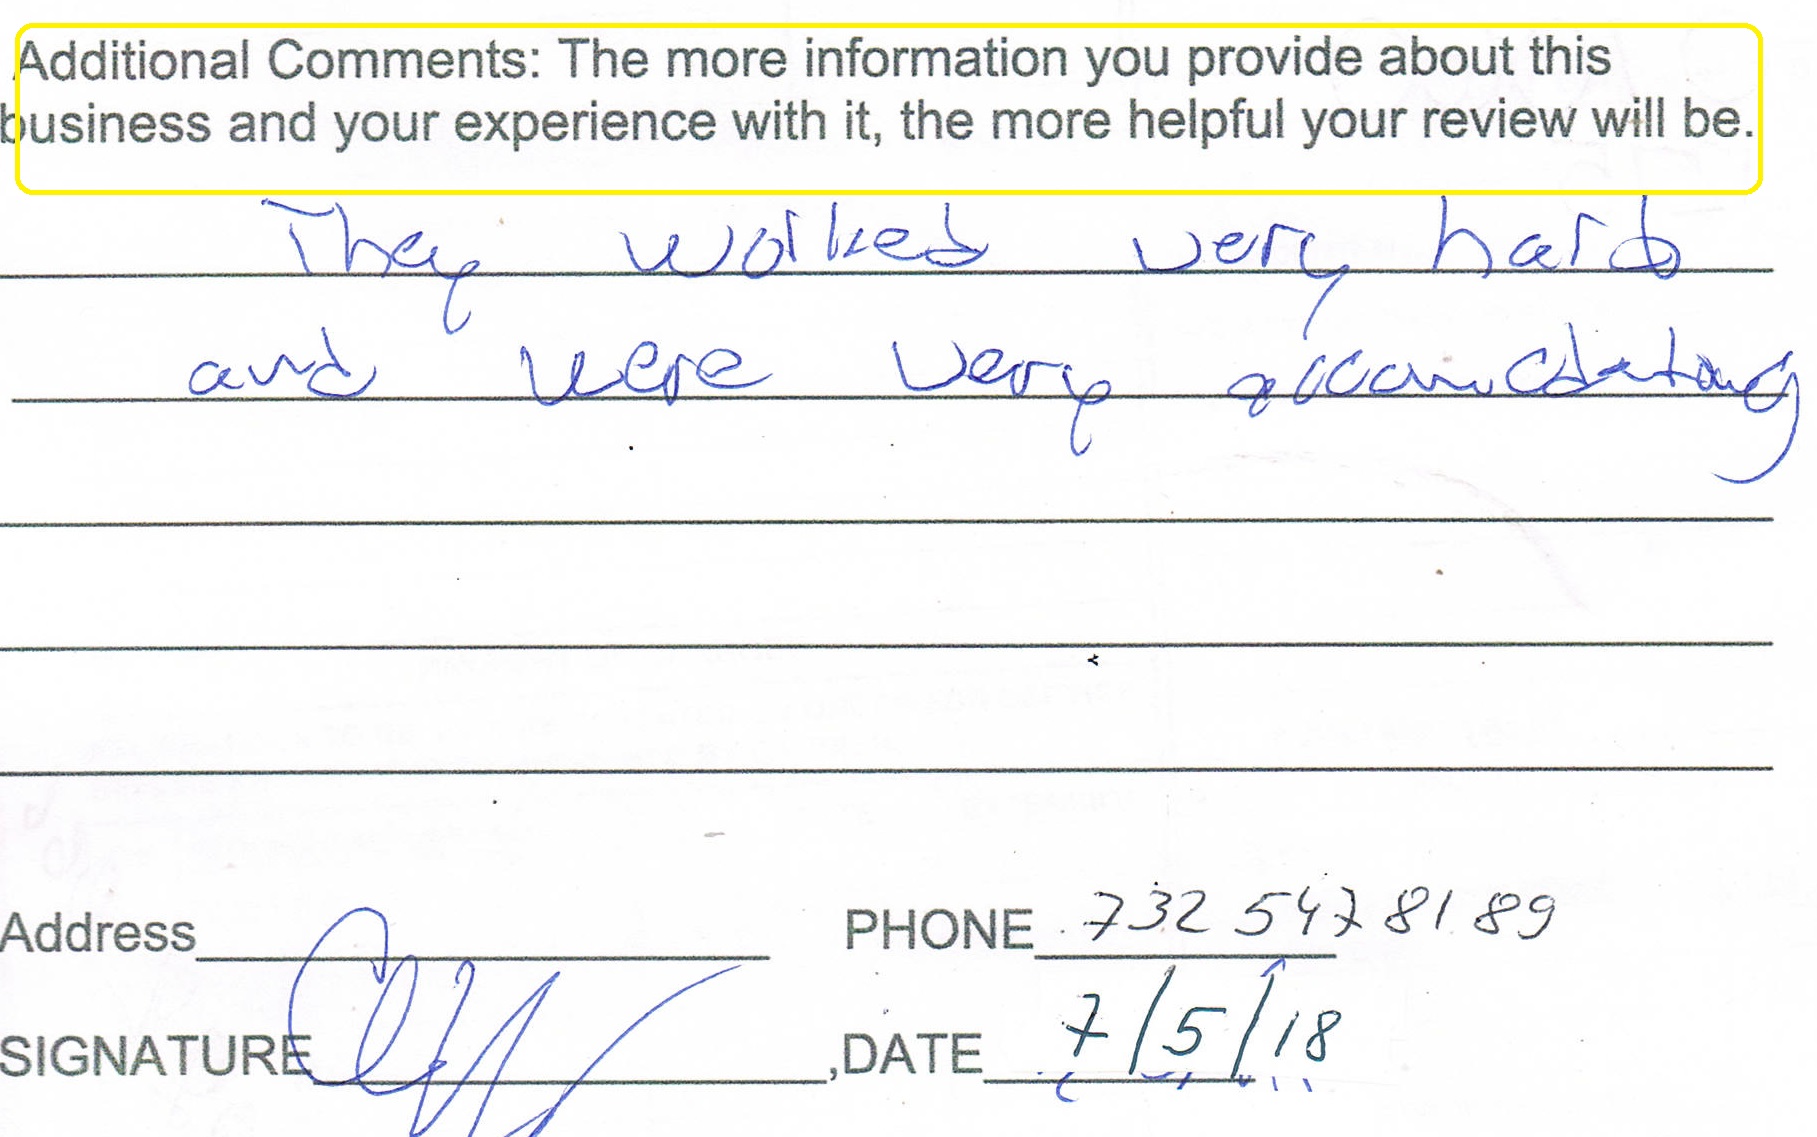 Additional Comments: The more information you provide about this
business and your experience with it, the more helpful your review will be.
They worked very hard
and were very accomodating
Address PHONE 732 547 8189
SIGNATURE ,DATE 7/5/18